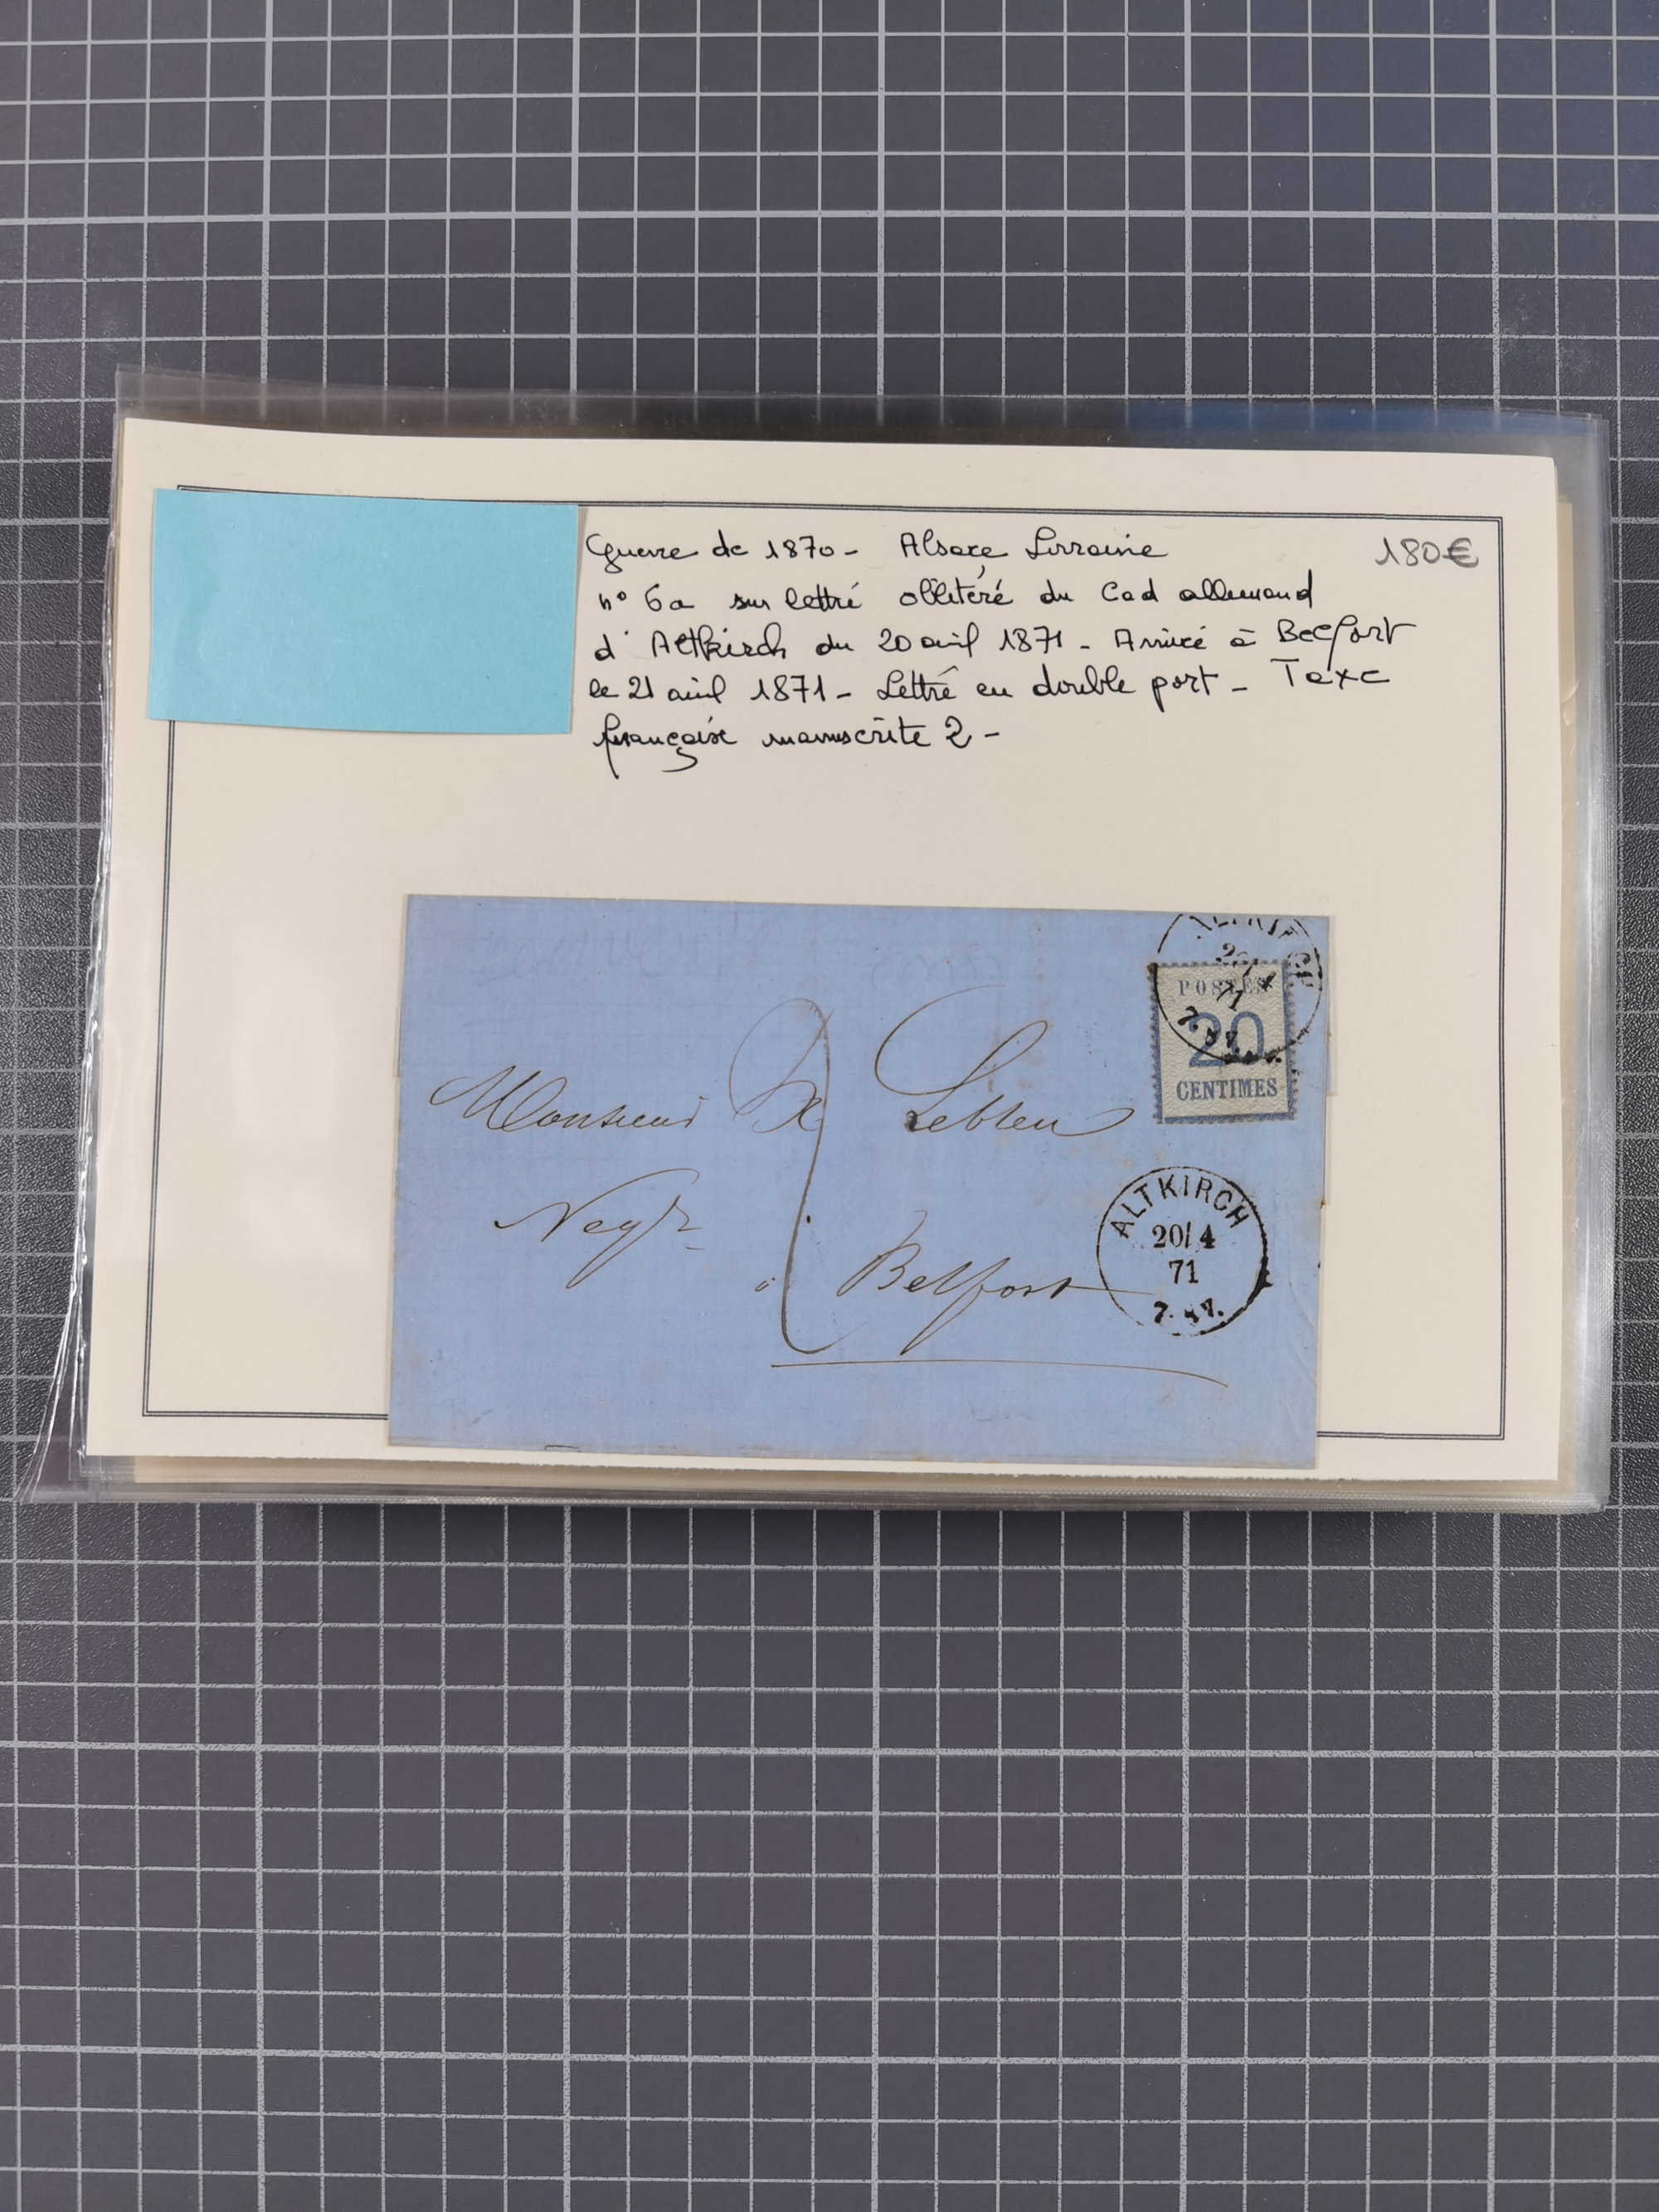 Guerre de 1870 - Alsace Lorraine
180€
n° 6a sur lettre oblitéré du Cad allemand
d'Altkirch du 20 avril 1871 - Arrivée à Belfort
le 21 avril 1871 - Lettre en double port - Taxe
française manuscrite 2 -
POSTES
20
CENTIMES
Monsieur X Lebleu
Negt
2
à Belfort
ALTKIRCH
20/4
71